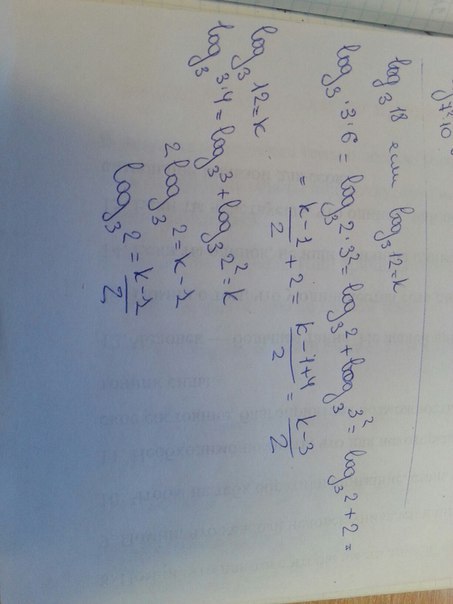 log₃18 если log₃12=k
log₃·3·6 = log₃2·3² = log₃2 + log₃3² = log₃2+2 =
= (k-1)/2 + 2 = (k-1+4)/2 = (k-3)/2
log₃12=k
log₃3·4 = log₃3 + log₃2² = k
2log₃2 = k-1
log₃2 = (k-1)/2